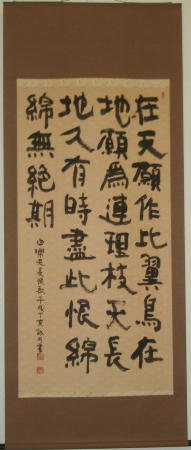 在天願作比翼鳥在
地願為連理枝天長
地久有時盡此恨綿
綿無絶期
白樂天長恨歌 平成丁亥